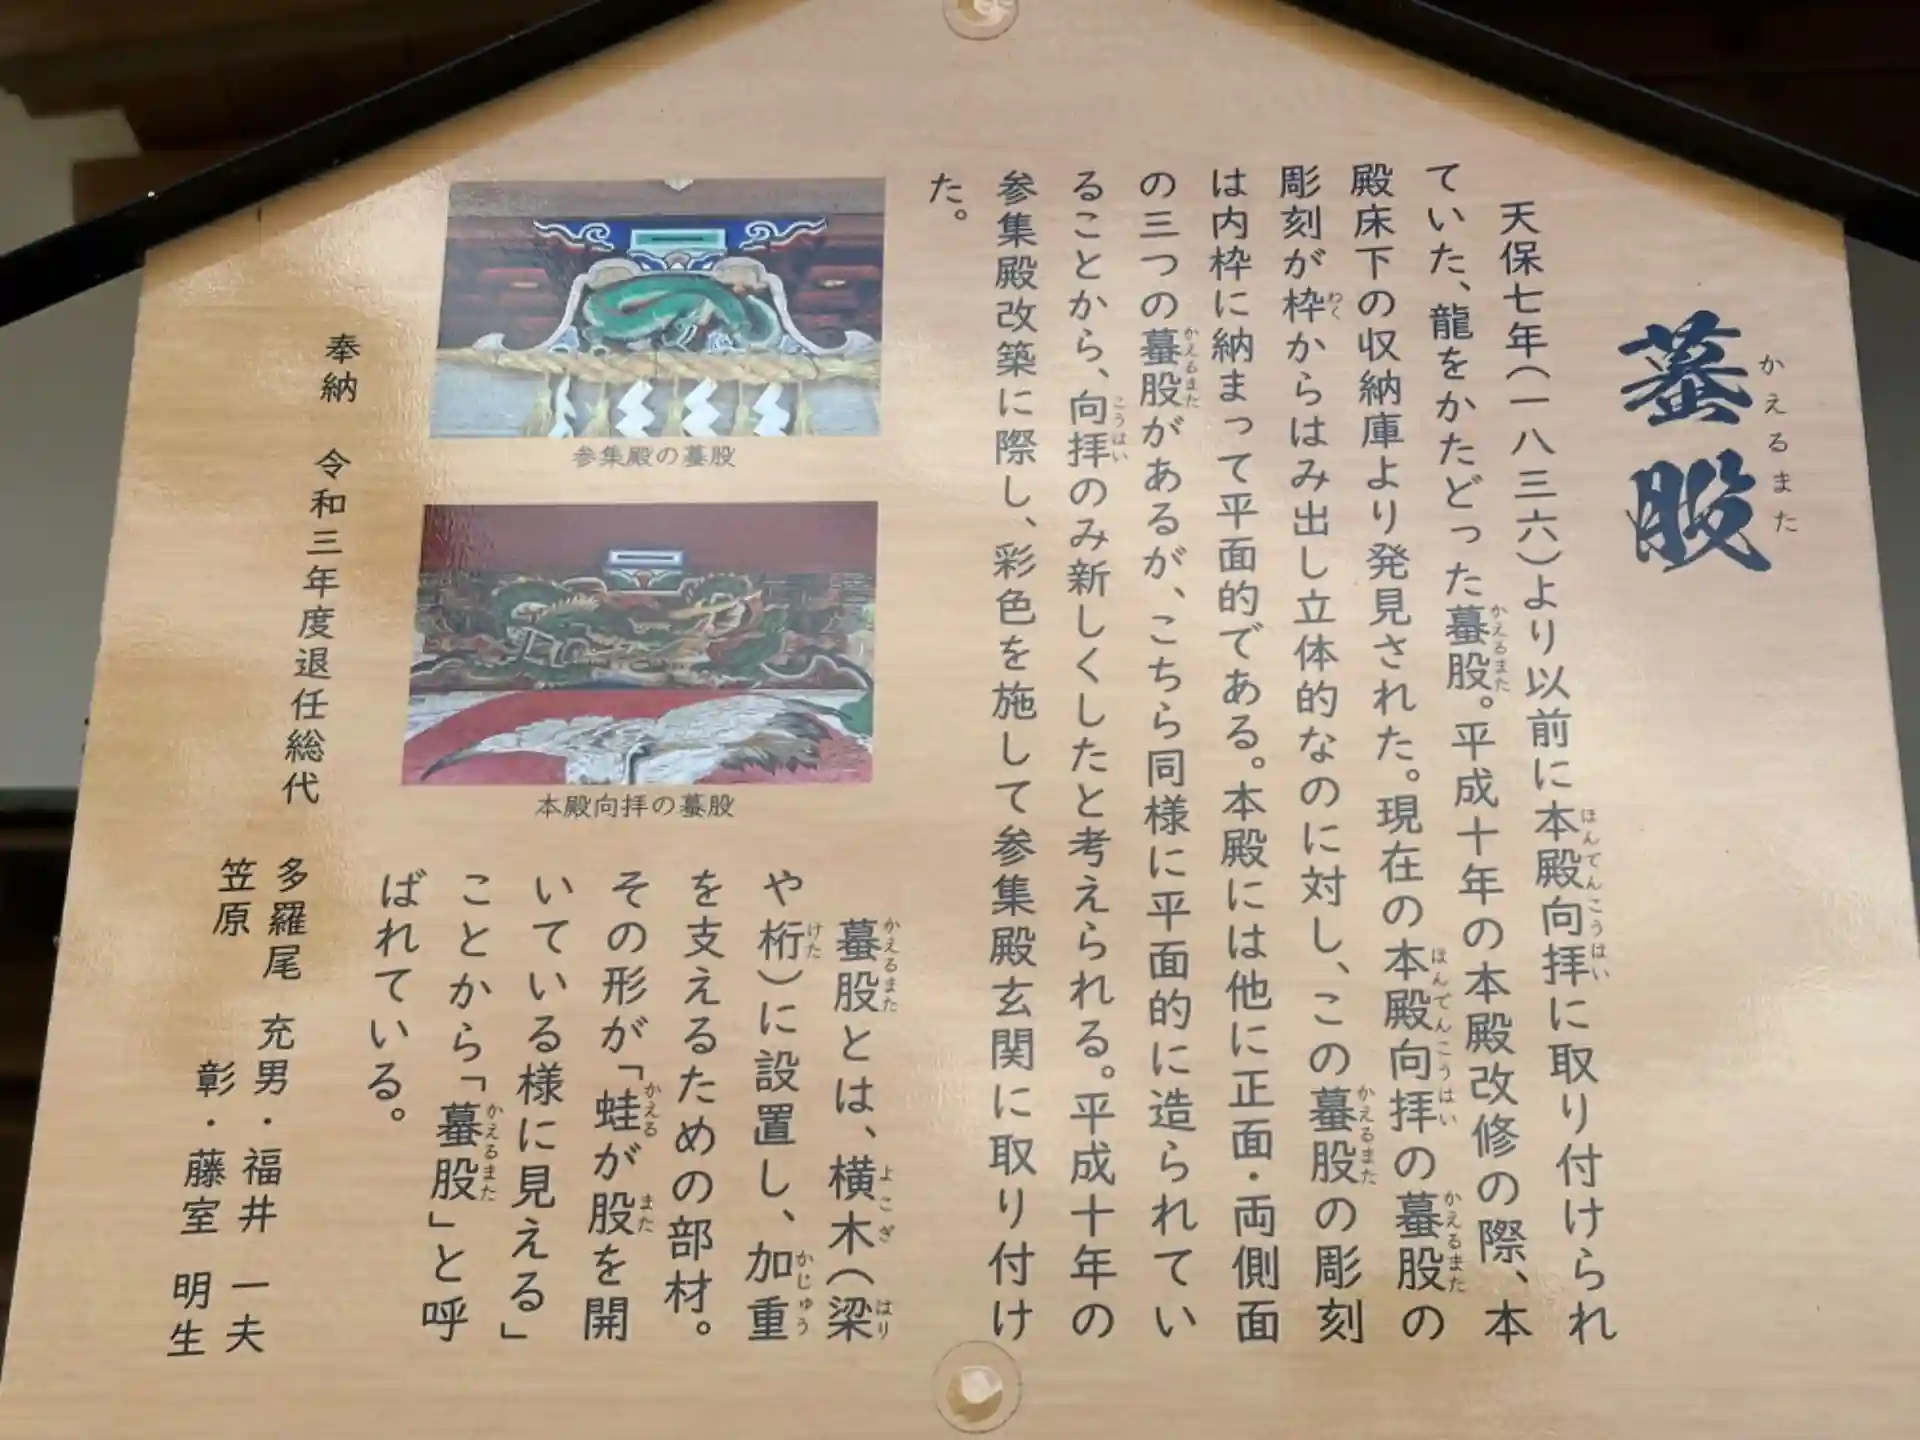 蟇股
かえるまた
天保七年(一八三六)より以前に本殿向拝に取り付けられ
ていた、龍をかたどった蟇股。平成十年の本殿改修の際、本
殿床下の収納庫より発見された。現在の本殿向拝の蟇股の
彫刻が枠からはみ出し立体的なのに対し、この蟇股の彫刻
は内枠に納まって平面的である。本殿には他に正面・両側面
の三つの蟇股があるが、こちら同様に平面的に造られてい
ることから、向拝のみ新しくしたと考えられる。平成十年の
参集殿改築に際し、彩色を施して参集殿玄関に取り付け
た。
参集殿の蟇股
本殿向拝の蟇股
蟇股とは、横木(梁
や桁)に設置し、加重
を支えるための部材。
その形が「蛙が股を開
いている様に見える」
ことから「蟇股」と呼
ばれている。
奉納 令和三年度退任総代 多羅尾 充男・福井 一夫
笠原 彰・藤室 明生